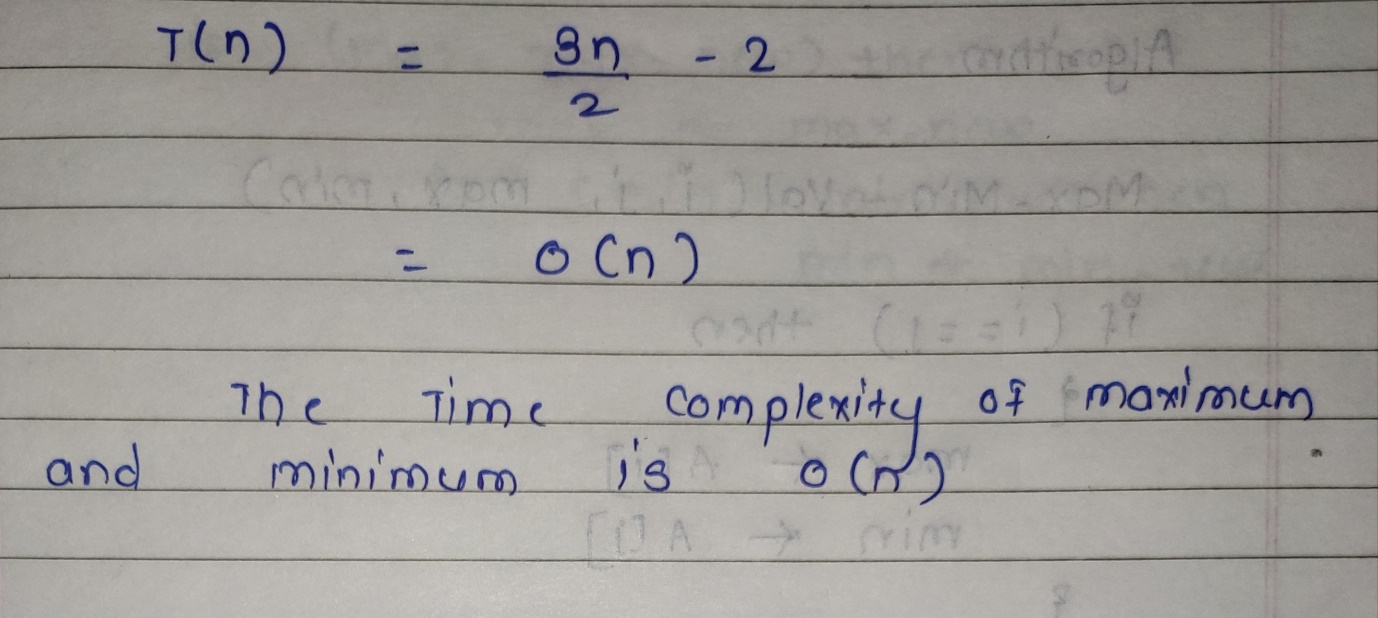 T(n) = 3n/2 - 2
= O(n)
The Time complexity of maximum
and minimum is O(n)